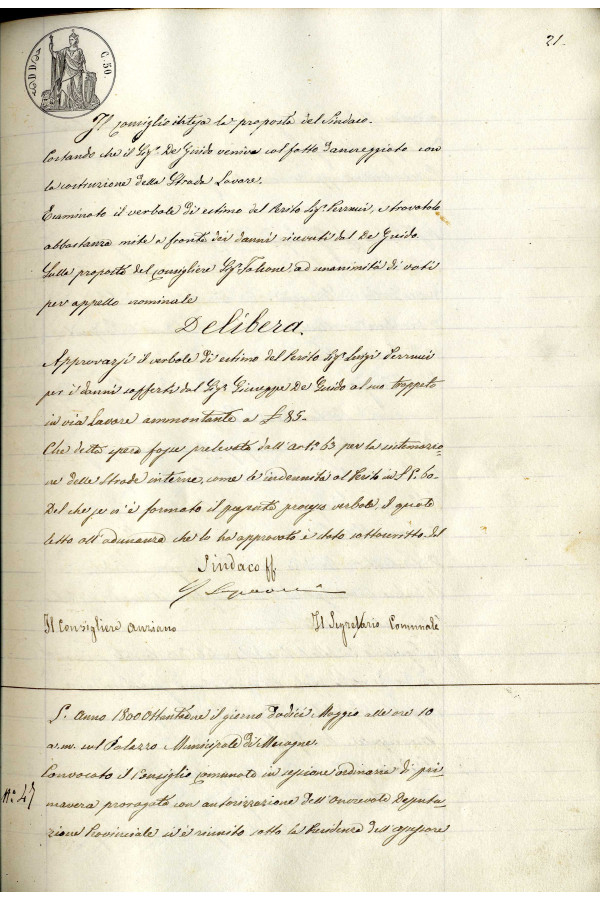 21.
C. 50.
Il Consiglio intesa la proposta del Sindaco.
Costando che il Sigr. De Guido veniva col fatto danneggiato con
la costruzione della Strada Lavare.
Esaminato il verbale di estimo del Perito Sigr. Perrucci, e trovatolo
abbastanza mite a fronte dei danni ricevuti dal De Guido
Sulla proposta del consigliere Sigr. Falcone, ad unanimità di voti
per appello nominale
Delibera.
Approvarsi il verbale di estimo del Perito Sigr. Luigi Perrucci
per i danni sofferti dal Sigr. Giuseppe De Guido al suo trappeto
in via Lavare ammontante a £ 85-
Che detta spesa fosse prelevata dall'art. 63 per la sistemazio-
ne delle Strade interne, come le indennità al Perito in £
Del che se n'è formato il presente processo verbale, il quale
letto all'adunanza che lo ha approvato è stato sottoscritto dal
Sindaco ff.
Il Consigliere Anziano
Il Segretario Comunale
L'Anno 1800 Ottantanove il giorno dodici Maggio alle ore 10
a.m. sul Palazzo Municipale di Mesagne.
Convocato il Consiglio comunale in sessione ordinaria di pri-
N° 47
mavera prorogata con autorizzazione dell'Onorevole Deputa-
zione Provinciale si è riunito sotto la Presidenza dell'assessore